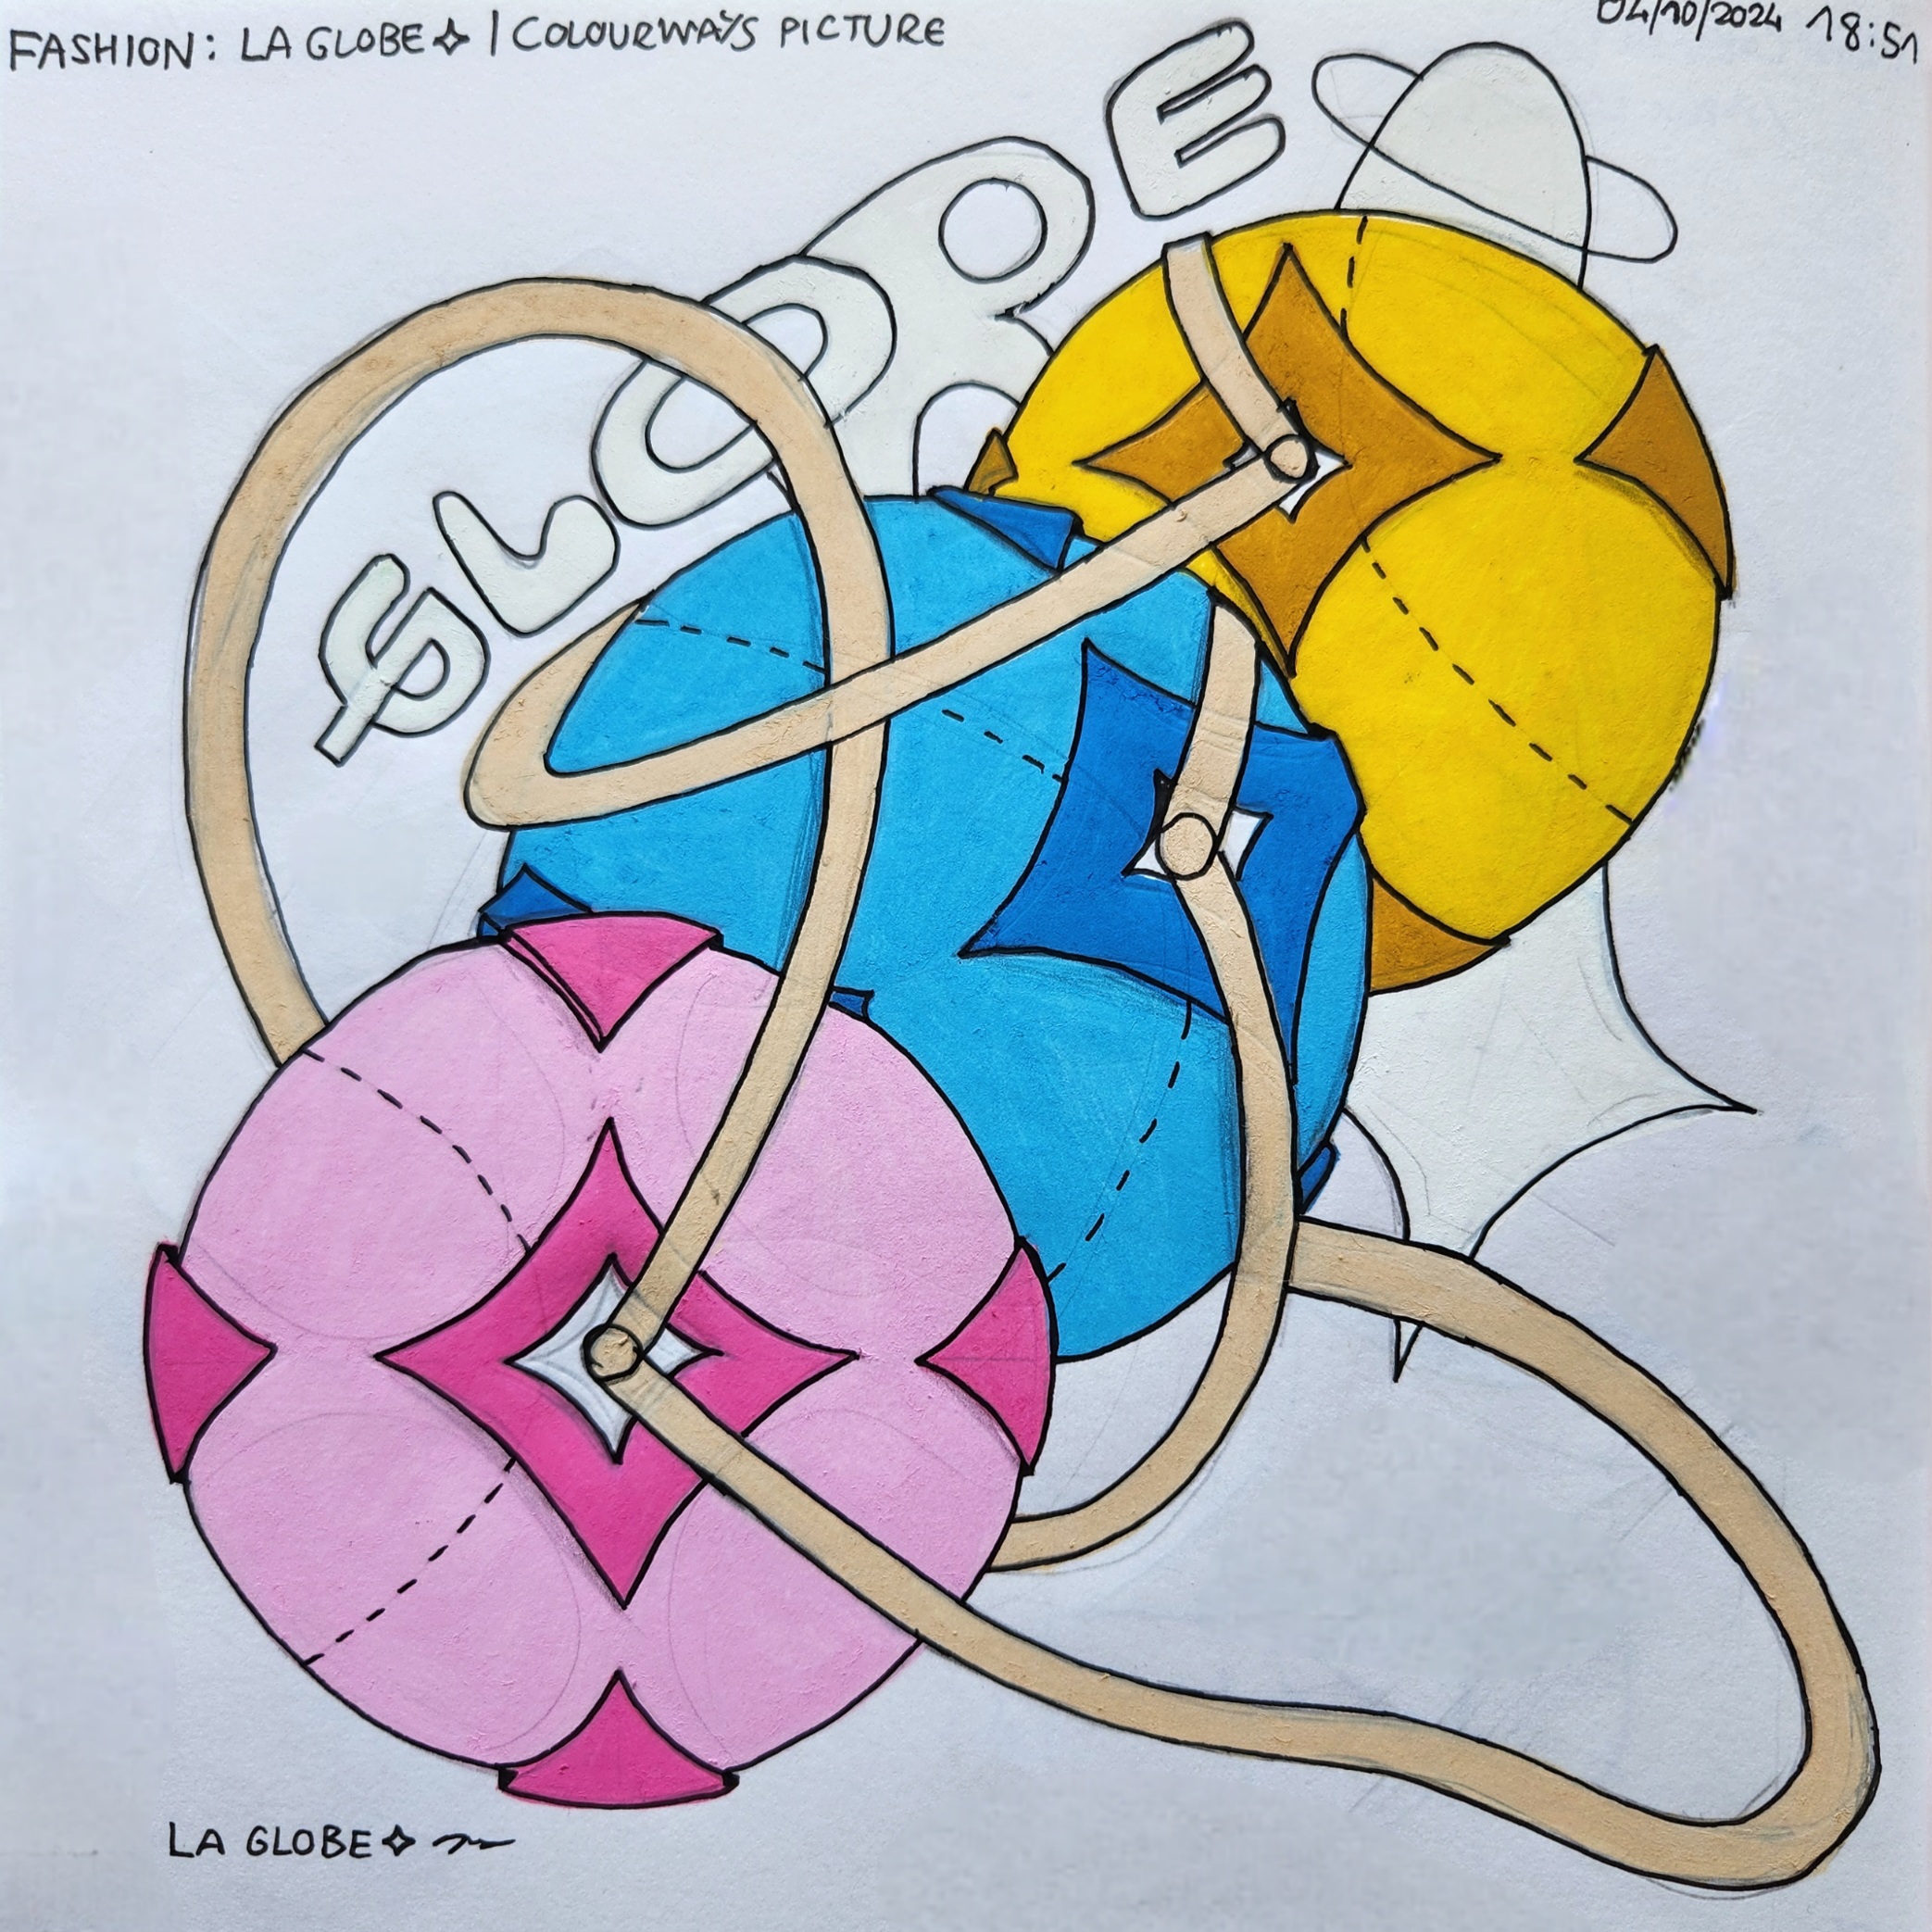 FASHION: LA GLOBE✧ | COLOURWAYS PICTURE
04/10/2024 18:51
GLOBE
LA GLOBE✧